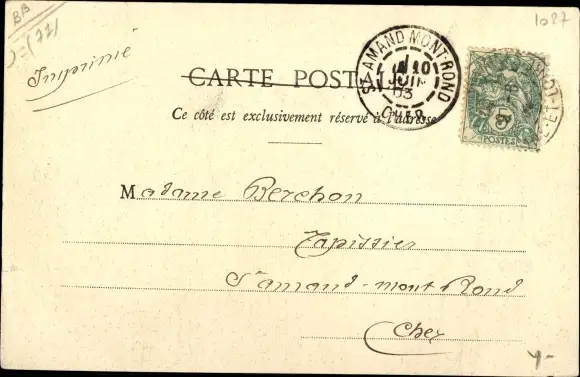 BB
1027
Imprimé
CARTE POSTALE
ST AMAND MONT-ROND
10
JUIN
03
CHER
Ce côté est exclusivement réservé à l'adresse
POSTES
Madame Berchon
Tapissier
St amand-mont Rond
Cher